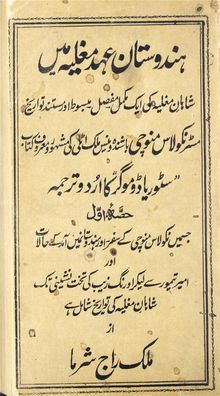 ہندوستان عہد مغلیہ میں
شاہان مغلیہ کی ایک مکمل مفصل مبسوط اور مستند تواریخ
مسٹر نکولاس منوچی باشندہ وینس ملک اٹلی کی مشہور و معروف کتاب
"سٹوریا ڈو موگر" کا اردو ترجمہ
حصہ اول
جسمیں نکولاس منوچی کے سفر اور ہندوستان میں آمد کے حالات
اور
امیر تیمور سے لیکر اورنگ زیب کی تخت نشینی تک
شاہان مغلیہ کی تواریخ شامل ہے
از
ملک راج شرما